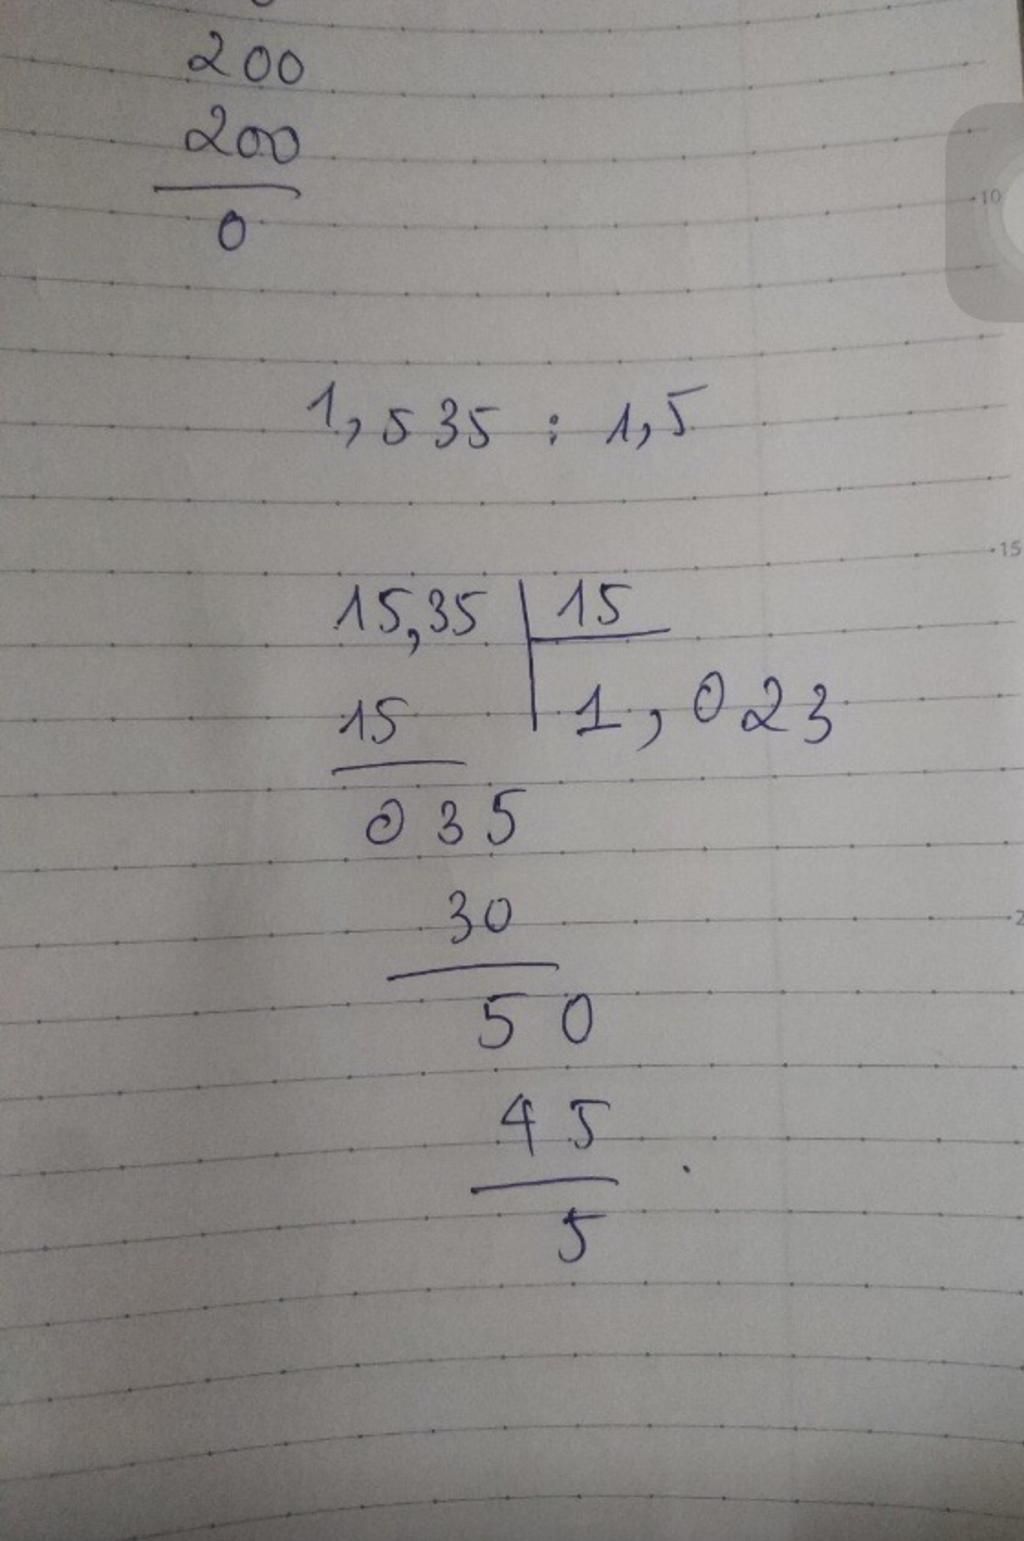 200
200
0
10
1,535 : 1,5
15
15,35 15
15 1,023
035
30
2
50
45
5